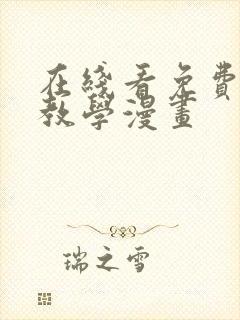 在綫看免費
教學漫畫
瑞之雪